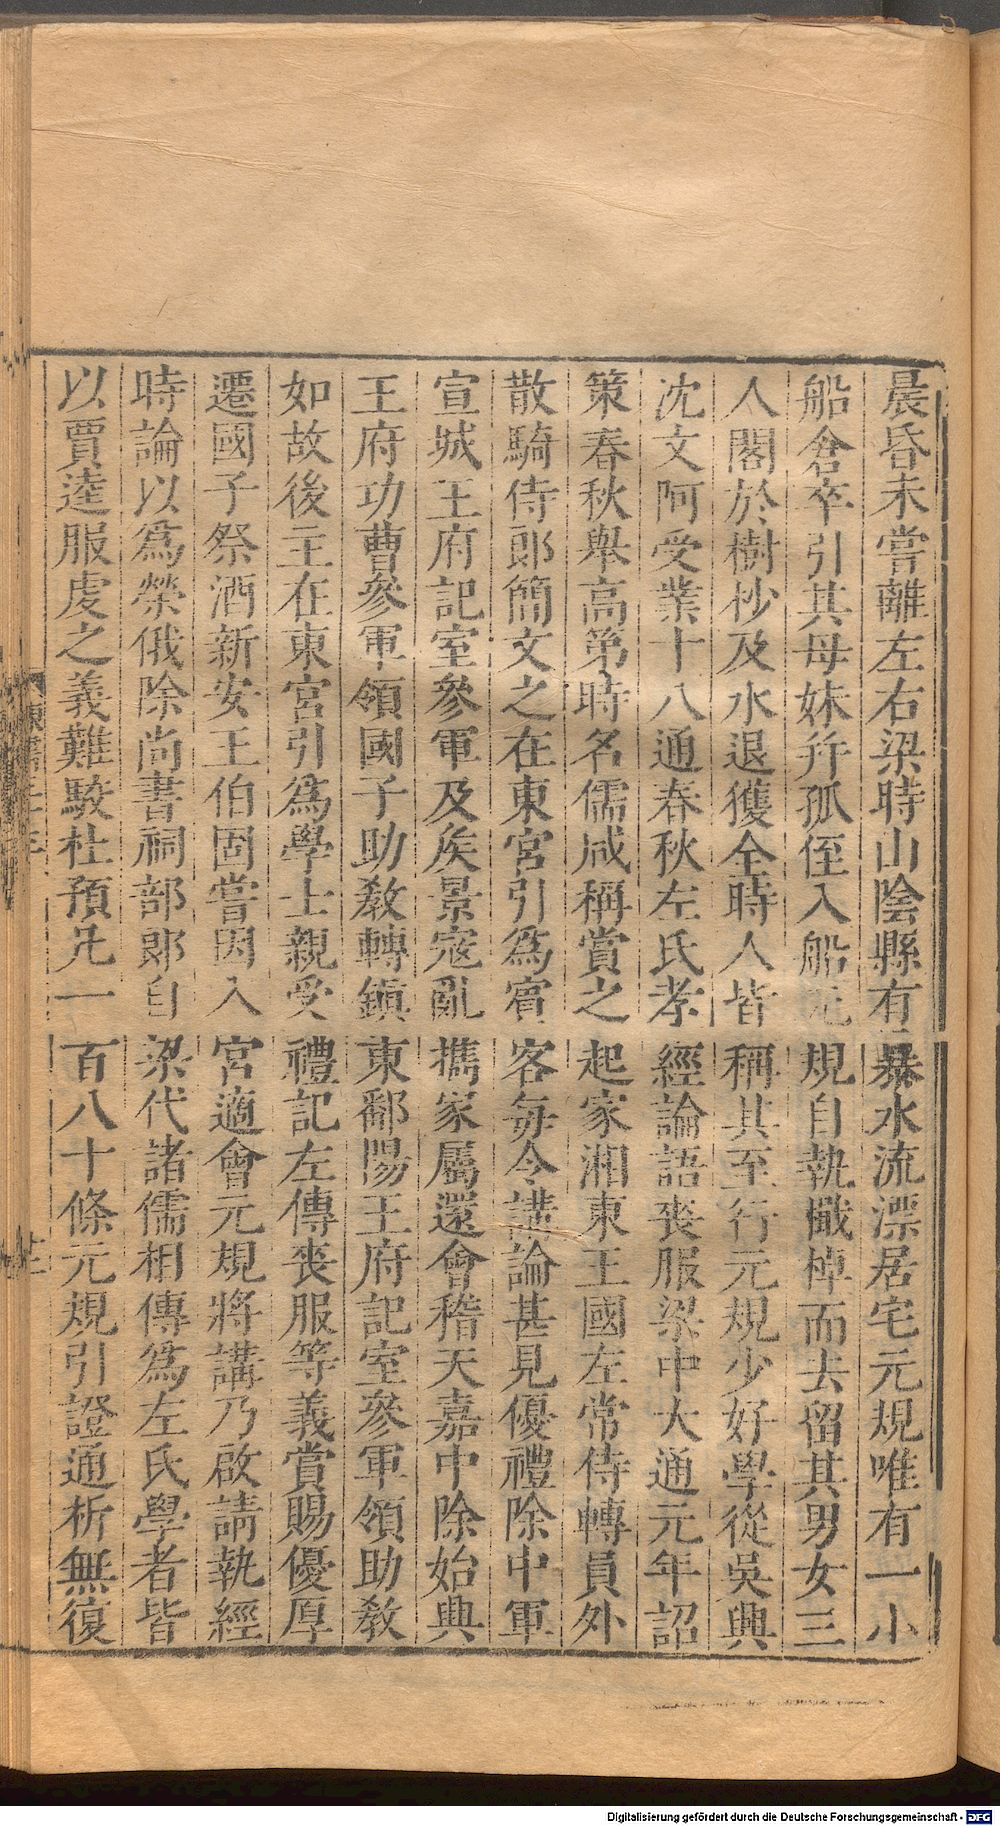 晨昏未嘗離左右梁時山陰縣有暴水流漂居宅元規唯有一小
船倉卒引其母妹幷孤侄入船元規自執檝棹而去留其男女三
人閣於樹杪及水退獲全時人皆稱其至行元規少好學從吳興
沈文阿受業十八通春秋左氏孝經論語喪服梁中大通元年詔
策春秋舉高第時名儒咸稱賞之起家湘東王國左常侍轉員外
散騎侍郞簡文之在東宮引爲賓客每令講論甚見優禮除中軍
宣城王府記室參軍及矦景寇亂攜家屬還會稽天嘉中除始興
王府功曹參軍領國子助敎轉鎮東鄱陽王府記室參軍領助敎
如故後主在東宮引爲學士親受禮記左傳喪服等義賞賜優厚
遷國子祭酒新安王伯固嘗因入宮適會元規將講乃啟請執經
時論以爲榮俄除尚書祠部郞自梁代諸儒相傳爲左氏學者皆
以賈逵服虔之義難駮杜預凡一百八十條元規引證通析無復
Digitalisierung gefördert durch die Deutsche Forschungsgemeinschaft - DFG